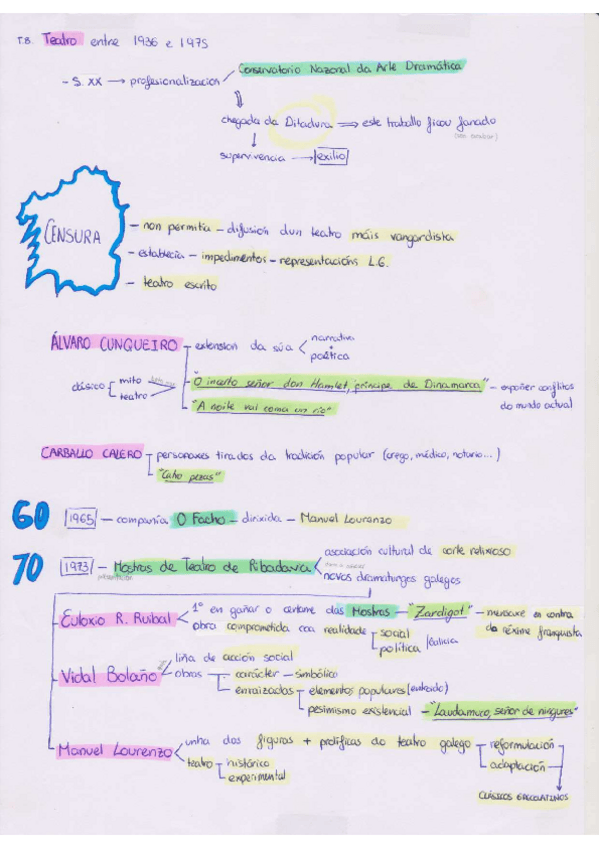 T.8. Teatro entre 1936 e 1975
- S. XX → profesionalización
Conservatorio Nazonal da Arte Dramática
chegada da Ditadura ⇒ este traballo ficou fanado
supervivencia → exilio
CENSURA
- non permitía - difusión dun teatro máis vangardista
- establecía - impedimentos - representacións L.G.
- teatro escrito
ÁLVARO CUNQUEIRO
extension da súa
narrativa
poética
clásico
mito
teatro
"O incerto señor don Hamlet, príncipe de Dinamarca" - expoñer conflitos
do mundo actual
"A noite vai coma un río"
CARBALLO CALERO
personaxes tirados da tradición popular (crego, médico, notario...)
60
1965 - compañía O Facho - dirixida - Manuel Lourenzo
70
1973 - Mostras de Teatro de Ribadavia
asociación cultural de corte relixioso
novos dramaturgos galegos
Euloxio R. Ruibal
1º en gañar o certame das Mostras - "Zardigot" - mensaxe en contra
do réxime franquista
obra comprometida coa realidade
social
política
Galicia
Vidal Bolaño
liña de acción social
obras
carácter - simbólico
enraizadas
elementos populares (entroido)
pesimismo existencial - "Laudamuco, señor de ningures"
Manuel Lourenzo
unha das figuras + prolíficas do teatro galego
reformulación
adaptación
teatro
histórico
experimental
CLÁSICOS GRECOLATINOS